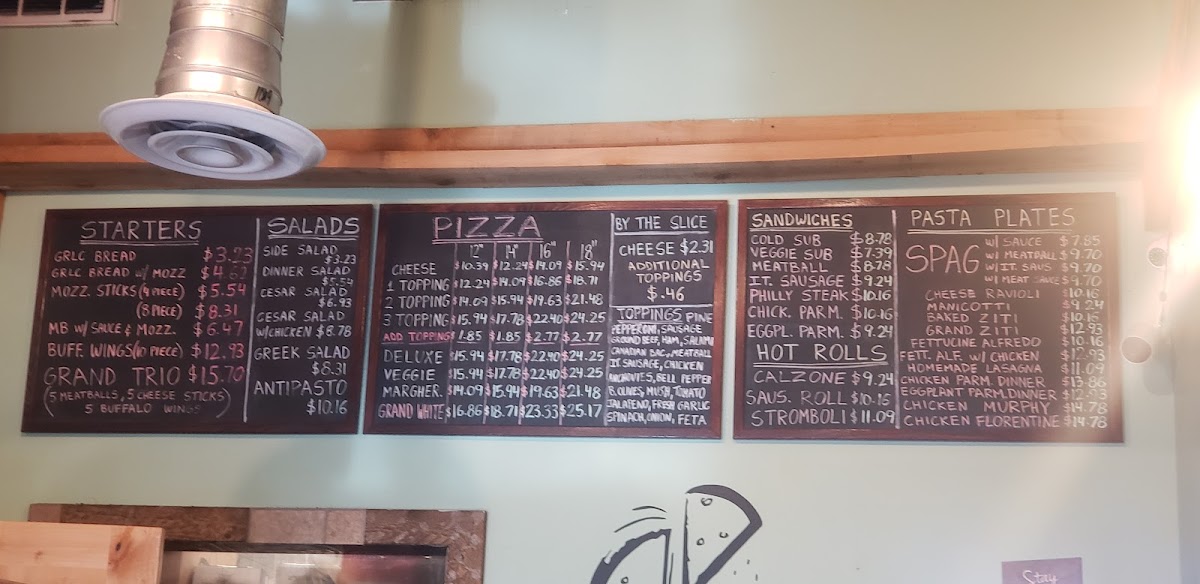 STARTERS
GRLC BREAD $3.23
GRLC BREAD W/ MOZZ $4.62
MOZZ. STICKS (4 PIECE) $5.54
(8 PIECE) $8.31
MB W/ SAUCE & MOZZ. $6.47
BUFF. WINGS (10 PIECE) $12.93
GRAND TRIO $15.70
(5 MEATBALLS, 5 CHEESE STICKS)
5 BUFFALO WINGS
SALADS
SIDE SALAD
$3.23
DINNER SALAD
$5.54
CESAR SALAD
$6.93
CESAR SALAD
W/CHICKEN $8.78
GREEK SALAD
$8.31
ANTIPASTO
$10.16
PIZZA
12" 14" 16" 18"
CHEESE $10.39 $12.24 $14.09 $15.94
1 TOPPING $12.24 $14.09 $16.86 $18.71
2 TOPPING $14.09 $15.94 $19.63 $21.48
3 TOPPING $15.94 $17.78 $22.40 $24.25
ADD TOPPING $1.85 $1.85 $2.77 $2.77
DELUXE $15.94 $17.78 $22.40 $24.25
VEGGIE $15.94 $17.78 $22.40 $24.25
MARGHER. $14.09 $15.94 $19.63 $21.48
GRAND WHITE $16.86 $18.71 $23.33 $25.17
BY THE SLICE
CHEESE $2.31
ADDITIONAL
TOPPINGS
$.46
TOPPINGS PINE
PEPPERONI, SAUSAGE
GROUND BEEF, HAM, SALAMI
CANADIAN BAC., MEATBALL
IT. SAUSAGE, CHICKEN
ANCHOVIES, BELL PEPPER
B. OLIVES, MUSH, TOMATO
JALAPENO, FRESH GARLIC
SPINACH, ONION, FETA
SANDWICHES
COLD SUB $8.78
VEGGIE SUB $7.39
MEATBALL $8.78
IT. SAUSAGE $9.24
PHILLY STEAK $10.16
CHICK. PARM. $10.16
EGGPL. PARM. $9.24
HOT ROLLS
CALZONE $9.24
SAUS. ROLL $10.16
STROMBOLI $11.09
PASTA PLATES
SPAG W/ SAUCE $7.85
W/ MEATBALL $9.70
W/ IT. SAUS $9.70
W/ MEAT SAUCE $9.70
CHEESE RAVIOLI $10.16
MANICOTTI $9.24
BAKED ZITI $10.16
GRAND ZITI $12.93
FETTUCINE ALFREDO $10.16
FETT. ALF. W/ CHICKEN $12.93
HOMEMADE LASAGNA $11.09
CHICKEN PARM. DINNER $13.86
EGGPLANT PARM. DINNER $12.93
CHICKEN MURPHY $14.78
CHICKEN FLORENTINE $14.78
Stay